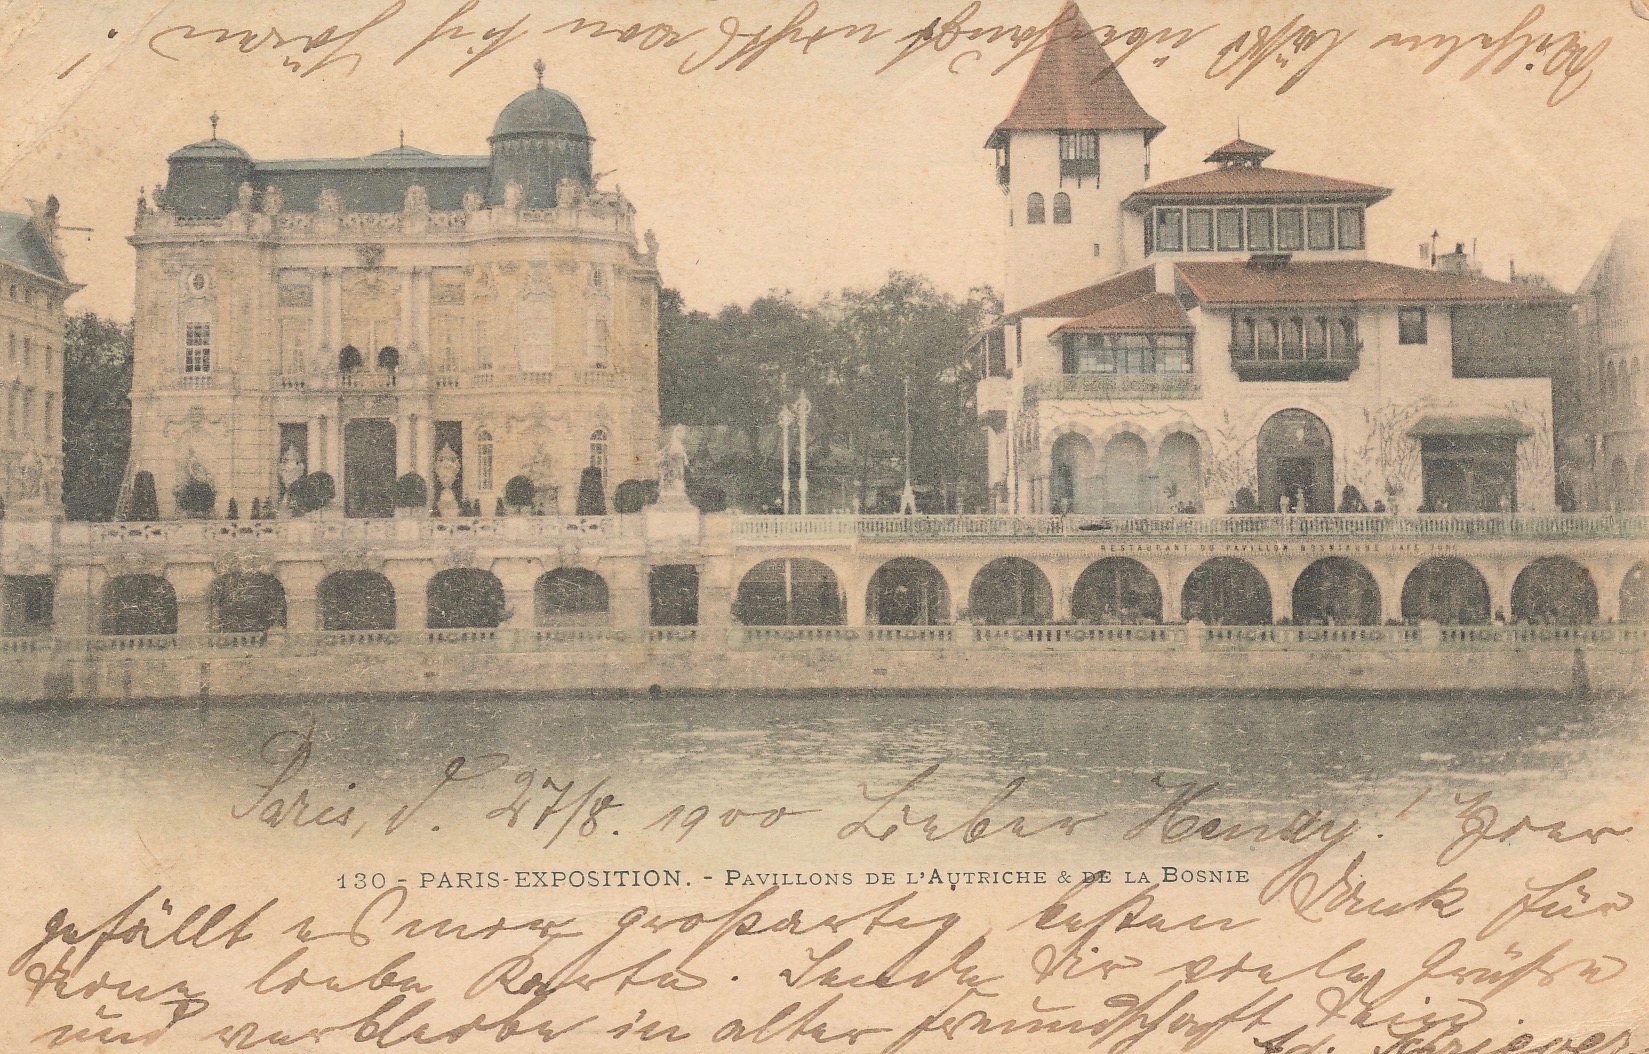 Wilhelm läßt überhaupt nichts von sich hören!
RESTAURANT DU PAVILLON BOSNIAQUE CAFÉ TURC
Paris, d. 27/8. 1900 Lieber Henry! Hier
130 - PARIS-EXPOSITION. - PAVILLONS DE L'AUTRICHE & DE LA BOSNIE
gefällt es mir großartig, besten Dank für
Deine liebe Karte. Sende Dir viele Grüße
und verbleibe in alter Freundschaft Dein
Ad.